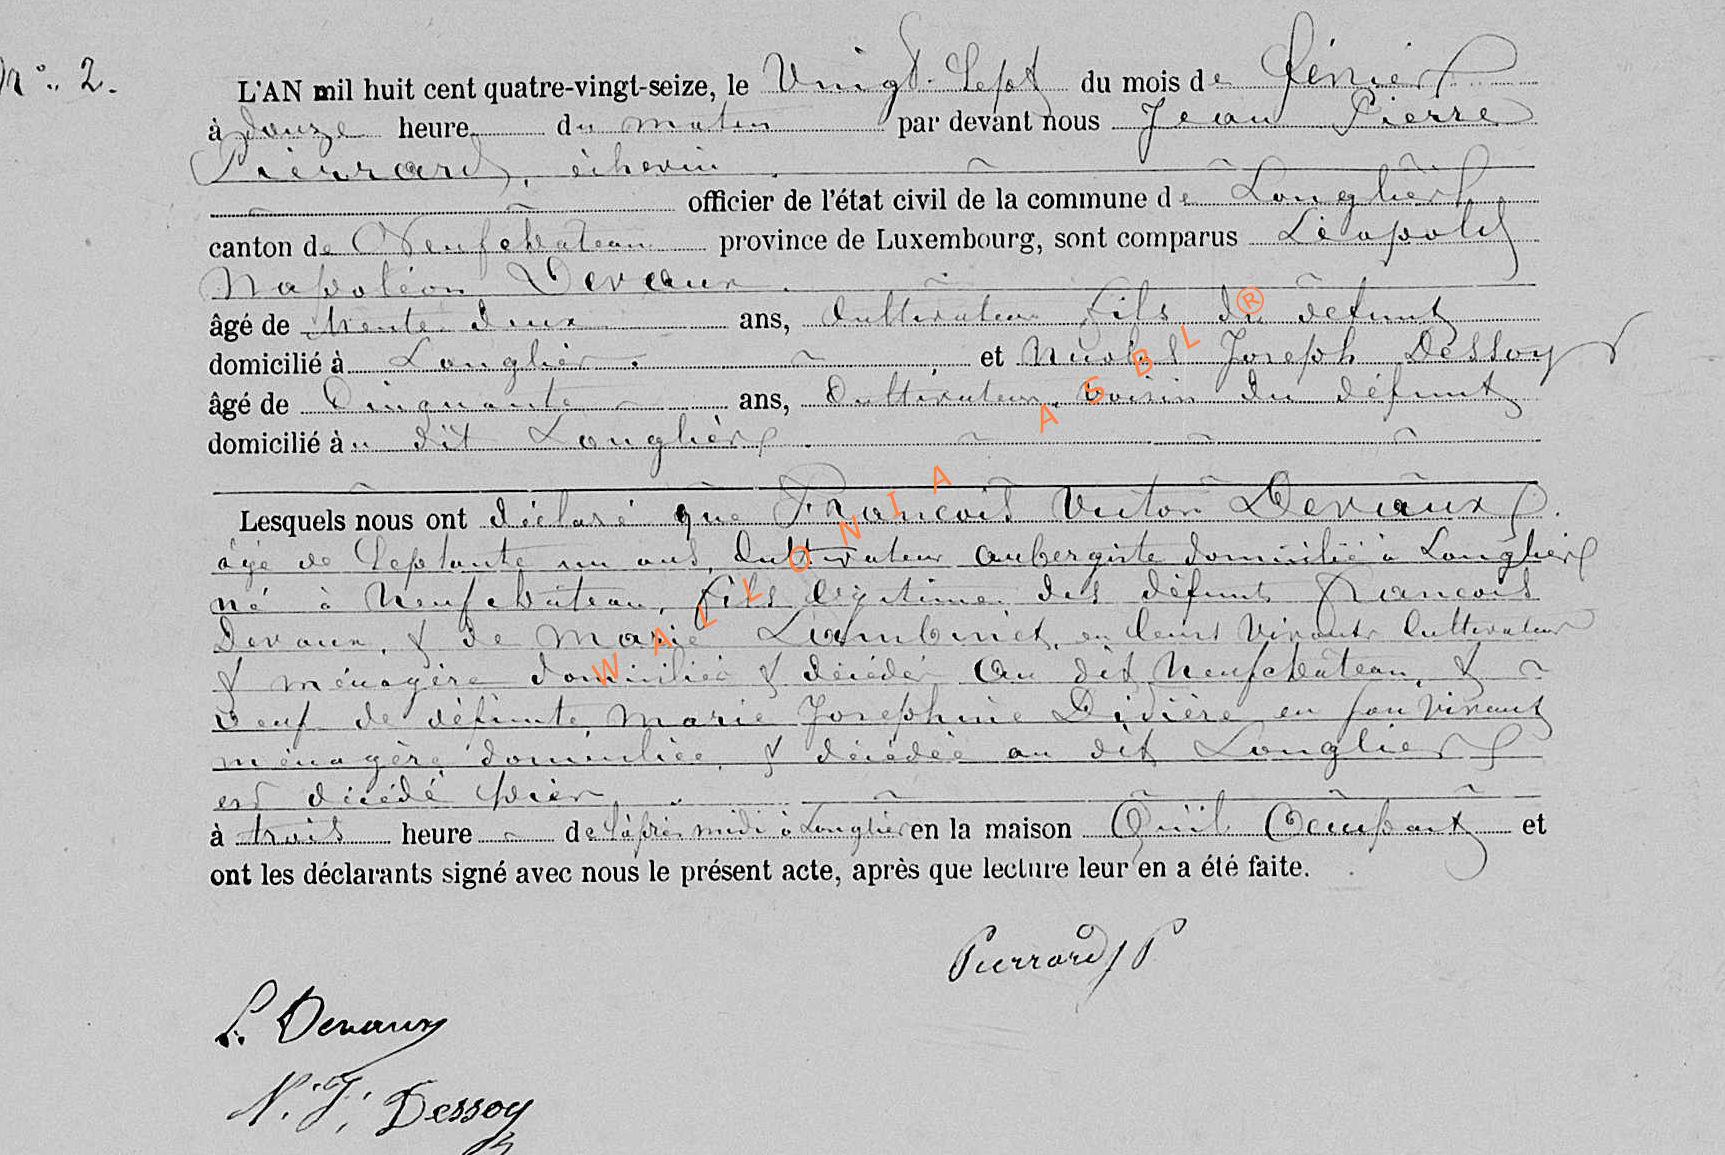 N° 2.
L'AN mil huit cent quatre-vingt-seize, le Vingt-Sept du mois de Février
à douze heure du matin par devant nous Jean Pierre
Pierrard, échevin
officier de l'état civil de la commune de Longlier
canton de Neufchâteau province de Luxembourg, sont comparus Léopold
Napoléon Devaux
âgé de trente deux ans, Cultivateur fils du défunt
domicilié à Longlier. et Nicolas Joseph Dessoy
âgé de Cinquante ans, Cultivateur voisin du défunt
domicilié àu dit Longlier
Lesquels nous ont déclaré que François Victor Devaux
âgé de Septante un ans, Cultivateur aubergiste domicilié à Longlier
né à Neufchâteau, fils légitime des défunts François
Devaux, & de Marie Lambinet, en leurs vivants Cultivateur
& ménagère domiciliés & décédés au dit Neufchâteau, &
veuf de défunte Marie Josephine Didière en son vivant
ménagère domiciliée & décédée au dit Longlier
est décédé hier
à trois heure de l'après midi à Longlier en la maison Qu'il Occupait et
ont les déclarants signé avec nous le présent acte, après que lecture leur en a été faite.
Pierrard J P
L. Devaux
N. J. Dessoy
WALLONIA ASBL ®